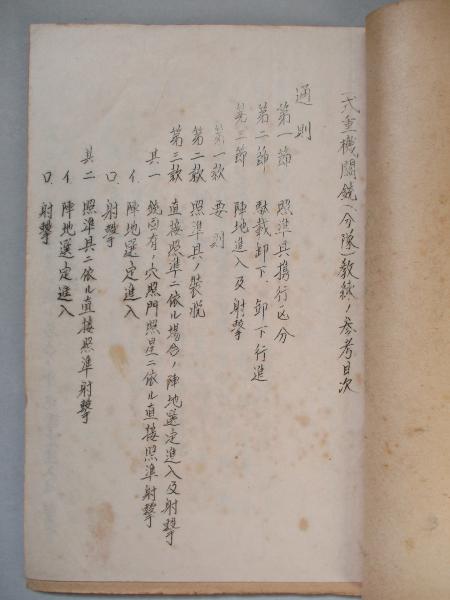 一式重機關銃(分隊)教練ノ参考目次
通則
第一節 照準具携行区分
第二節 駄載卸下、卸下行進
第三節 陣地進入及射撃
第一款 要則
第二款 照準具ノ装脱
第三款 直接照準ニ依ル場合ノ陣地選定進入及射撃
其一 銃固有ノ穴照門照星ニ依ル直接照準射撃
イ、陣地選定進入
ロ、射撃
其二 照準具ニ依ル直接照準射撃
イ、陣地選定進入
ロ、射撃